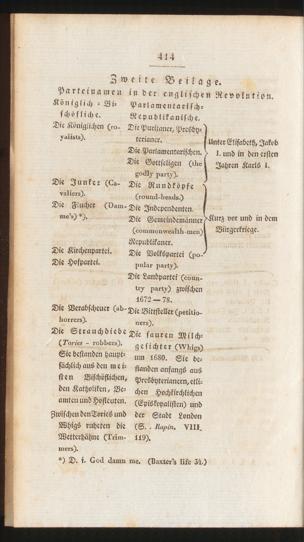 414
Zweite Beilage.
Parteinamen in der englischen Revolution.
Königlich = Bischöfliche.
Die Königlichen (royalists).
Die Junker (Cavaliers).
Die Flucher (Damme's) *).
Die Kirchenpartei.
Die Hofpartei.
Die Verabscheuer (abhorrers).
Die Strauchdiebe
(Tories - robbers).
Sie bestanden hauptsächlich aus den meisten Bischöflichen,
den Katholiken, Beamten und Hofleuten.
Zwischen den Tories und
Whigs ruheten die
Wetterhähne (Trimmers).
Parlamentarisch=
Republikanische.
Die Puritaner, Presbyterianer.
Die Parlamentarischen.
Die Gottseligen (the
godly party).
Die Rundköpfe
(round-heads.)
Die Independenten.
Die Gemeindemänner
(commonwealth-men)
Republikaner.
Die Volkspartei (popular party).
Die Landpartei (country party) zwischen
1672 — 78.
Die Bittsteller (petitioners).
Die sauren Milchgesichter (Whigs)
um 1680. Sie bestanden anfangs aus
Presbyterianern, etlichen Hochkirchlichen
(Episkopalisten) und
der Stadt London
(S. Rapin. VIII.
119).
Unter Elisabeth, Jakob
I. und in den ersten
Jahren Karls I.
Kurz vor und in dem
Bürgerkriege.
*) D. i. God damn me. (Baxter's life 34.)